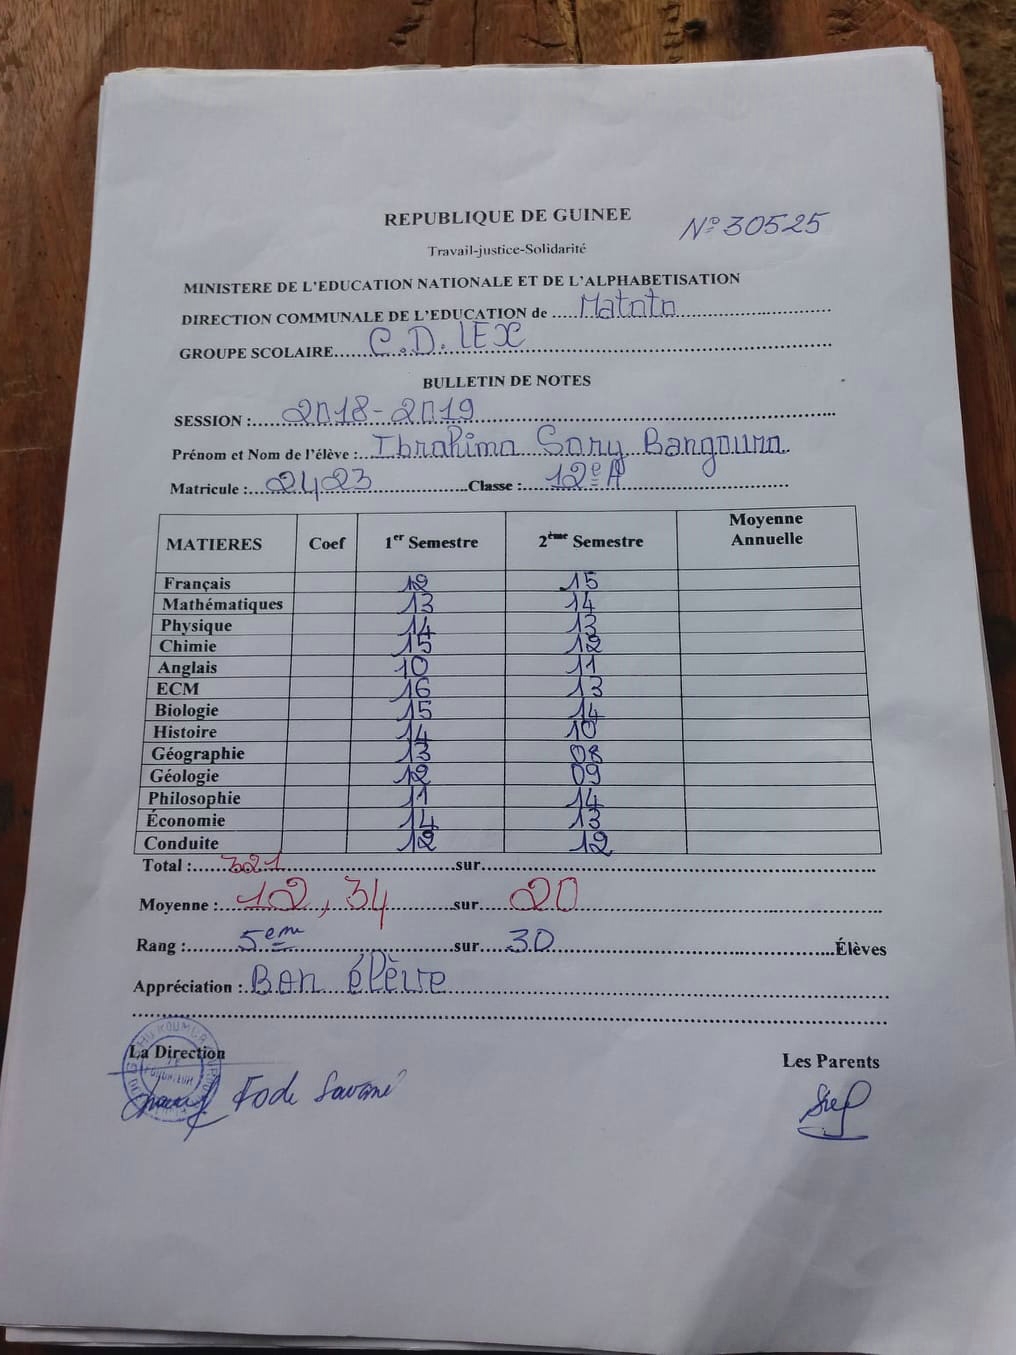 REPUBLIQUE DE GUINEE
N° 30525
Travail-justice-Solidarité
MINISTERE DE L'EDUCATION NATIONALE ET DE L'ALPHABETISATION
DIRECTION COMMUNALE DE L'EDUCATION de ..... Matoto
GROUPE SCOLAIRE..... C.D. LEX
BULLETIN DE NOTES
SESSION :..... 2018-2019
Prénom et Nom de l'élève :... Ibrahima Sory Bangoura
Matricule :... 2423 ...Classe :... 12e A
MATIERES Coef 1er Semestre 2ème Semestre Moyenne Annuelle
Français 12 15
Mathématiques 13 14
Physique 14 13
Chimie 15 12
Anglais 10 11
ECM 16 13
Biologie 15 14
Histoire 14 10
Géographie 13 08
Géologie 12 09
Philosophie 11 14
Économie 14 13
Conduite 12 12
Total :..... 321 .....sur.....
Moyenne :..... 12,34 .....sur..... 20
Rang :..... 5eme .....sur..... 30 .....Élèves
Appréciation :.. Bon élève
La Direction
Les Parents
FONDATEUR
Fode Savané